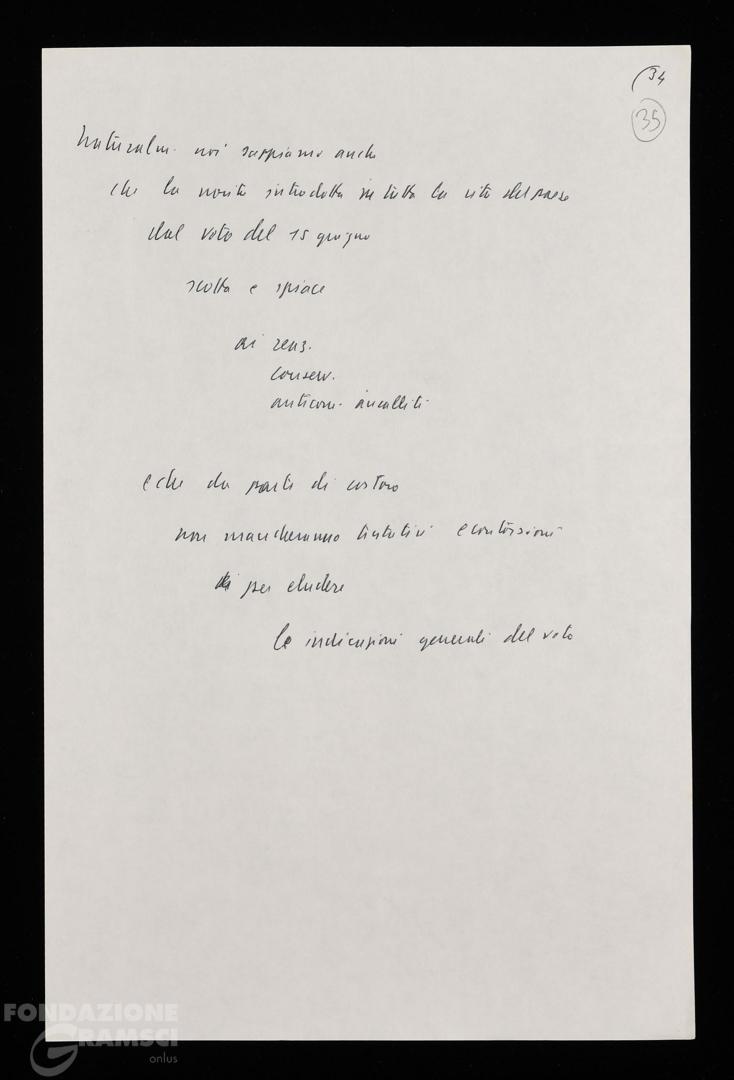 (34
35
Naturalm. noi sappiamo anche
che la novità introdotta in tutta la vita del paese
dal voto del 15 giugno
scotta e spiace
ai reaz.
conserv.
anticom. incalliti
e che da parte di costoro
non mancheranno tentativi e contorsioni
per eludere
le indicazioni generali del voto
FONDAZIONE
GRAMSCI
onlus